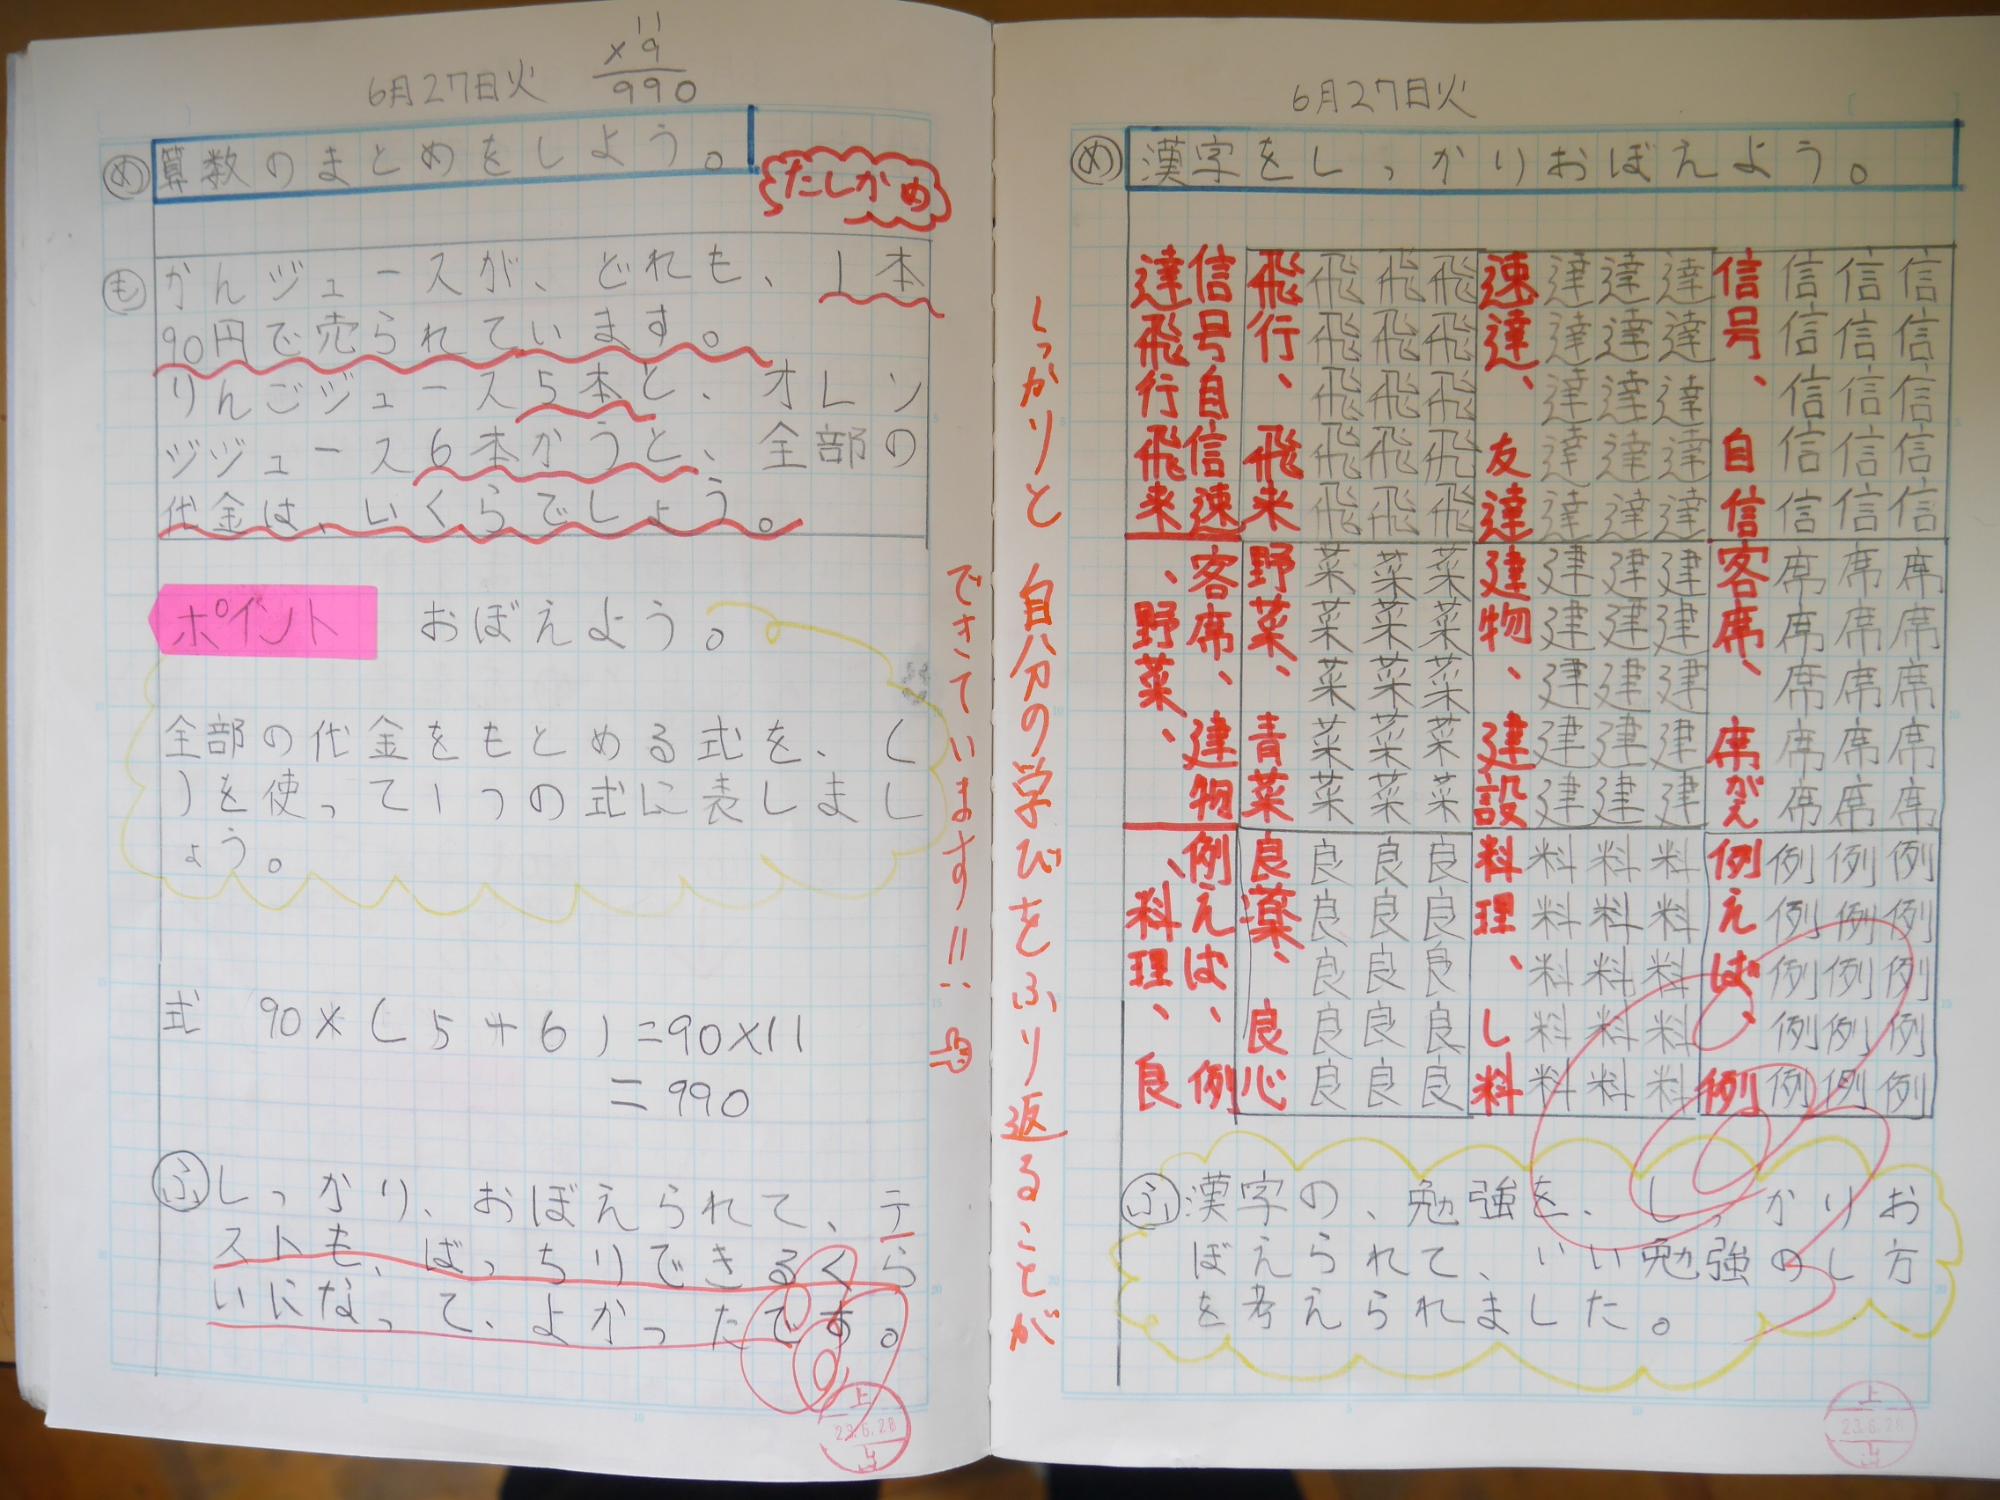 6月27日火
11
×9
990
め
算数のまとめをしよう。
たしかめ
も
かんジュースが、どれも、1本
90円で売られています。
りんごジュース5本と、オレン
ジジュース6本かうと、全部の
代金は、いくらでしょう。
ポイント
おぼえよう。
全部の代金をもとめる式を、(
)を使って1つの式に表しまし
ょう。
式 90×(5+6)=90×11
=990
ふ
しっかり、おぼえられて、テ
ストも、ばっちりできるくら
いになって、よかったです。
上
23.6.28
しっかりと自分の学びをふり返ることが
できています!!
6月27日火
め
漢字をしっかりおぼえよう。
信信信信信
信信信信信
信信信信信
信号、自信
達達達達達
達達達達達
達達達達達
速達、友達
飛飛飛飛飛
飛飛飛飛飛
飛飛飛飛飛
飛行、飛来
信号自信速
達飛行飛来
席席席席席
席席席席席
席席席席席
客席、席がえ
建建建建建
建建建建建
建建建建建
建物、建設
菜菜菜菜菜
菜菜菜菜菜
菜菜菜菜菜
野菜、青菜
客席、建物
、野菜、
例例例例例
例例例例例
例例例例例
例えば、例
料料料料料
料料料料料
料料料料料
料理、し料
良良良良良
良良良良良
良良良良良
良薬、良心
例えば、例
、料理、良
ふ
漢字の、勉強を、しっかりお
ぼえられて、いい勉強のし方
を考えられました。
上
23.6.28